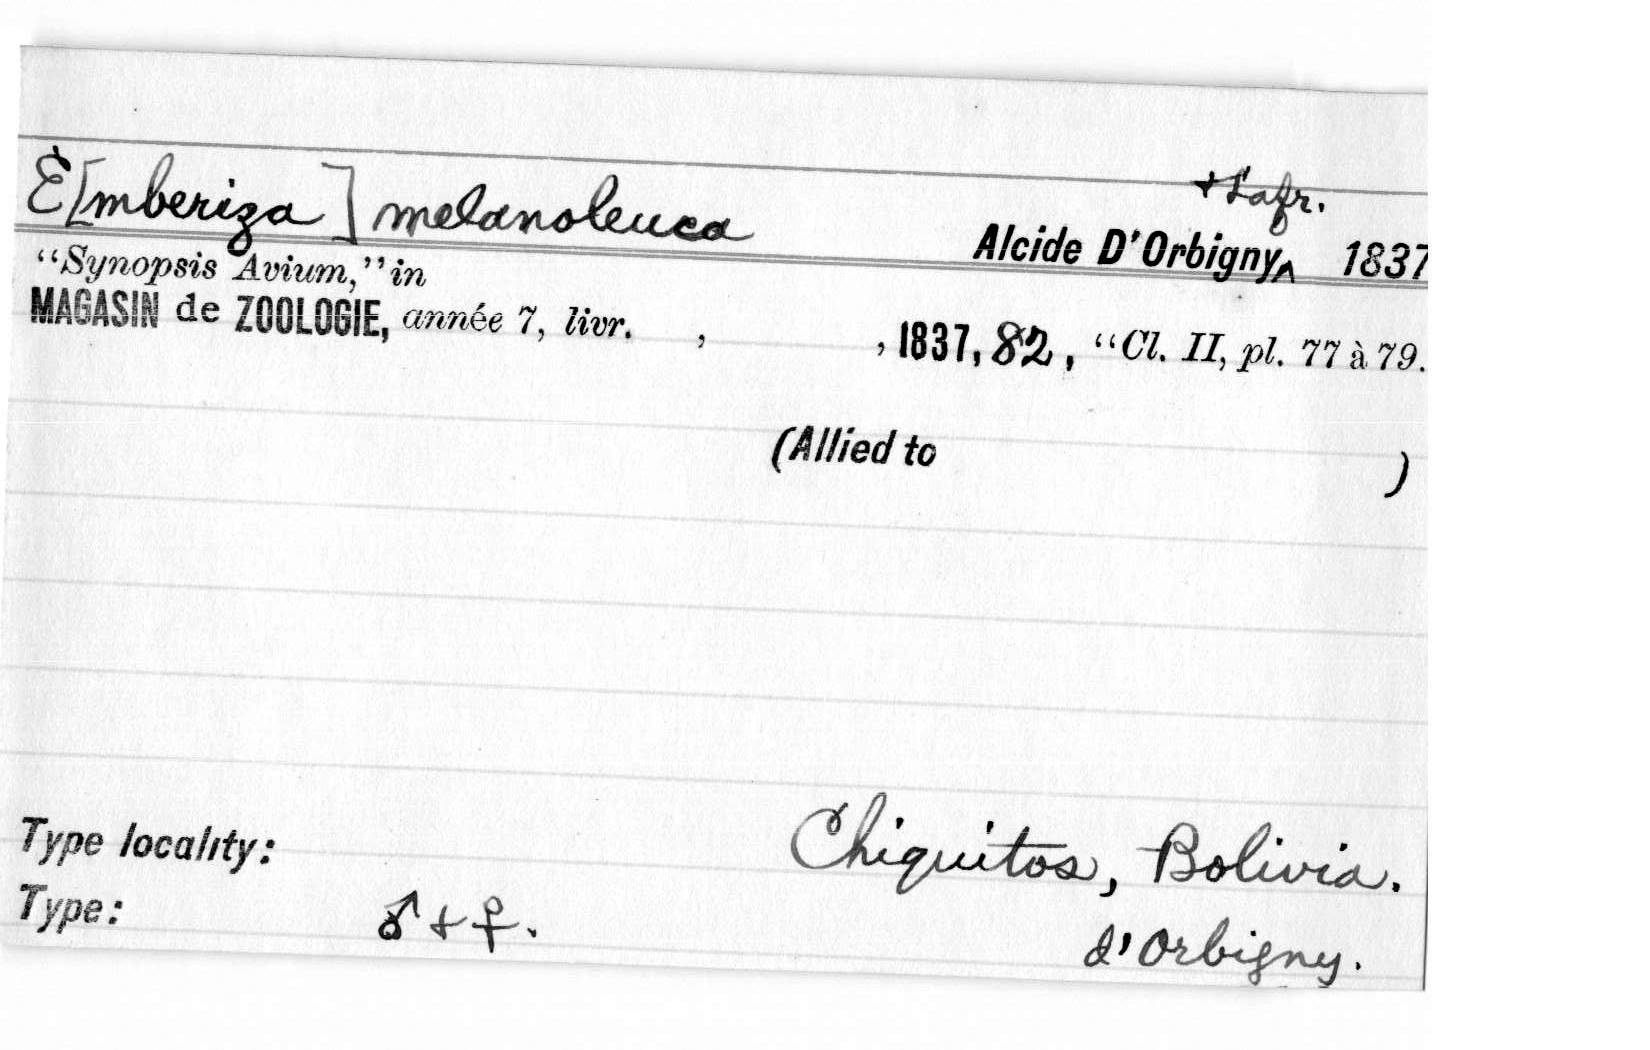 E[mberiza] melanoleuca
+ Lafr.
Alcide D'Orbigny‸ 1837
“Synopsis Avium,” in
MAGASIN de ZOOLOGIE, année 7, livr. , , 1837, 82, “Cl. II, pl. 77 à 79.
(Allied to )
Type locality: Chiquitos, Bolivia.
Type: ♂ + ♀. d'Orbigny.